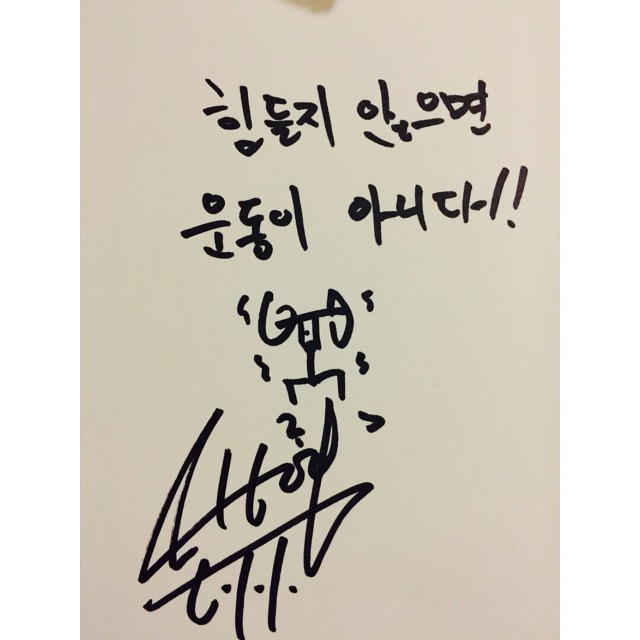 힘들지 않으면
운동이 아니다!!